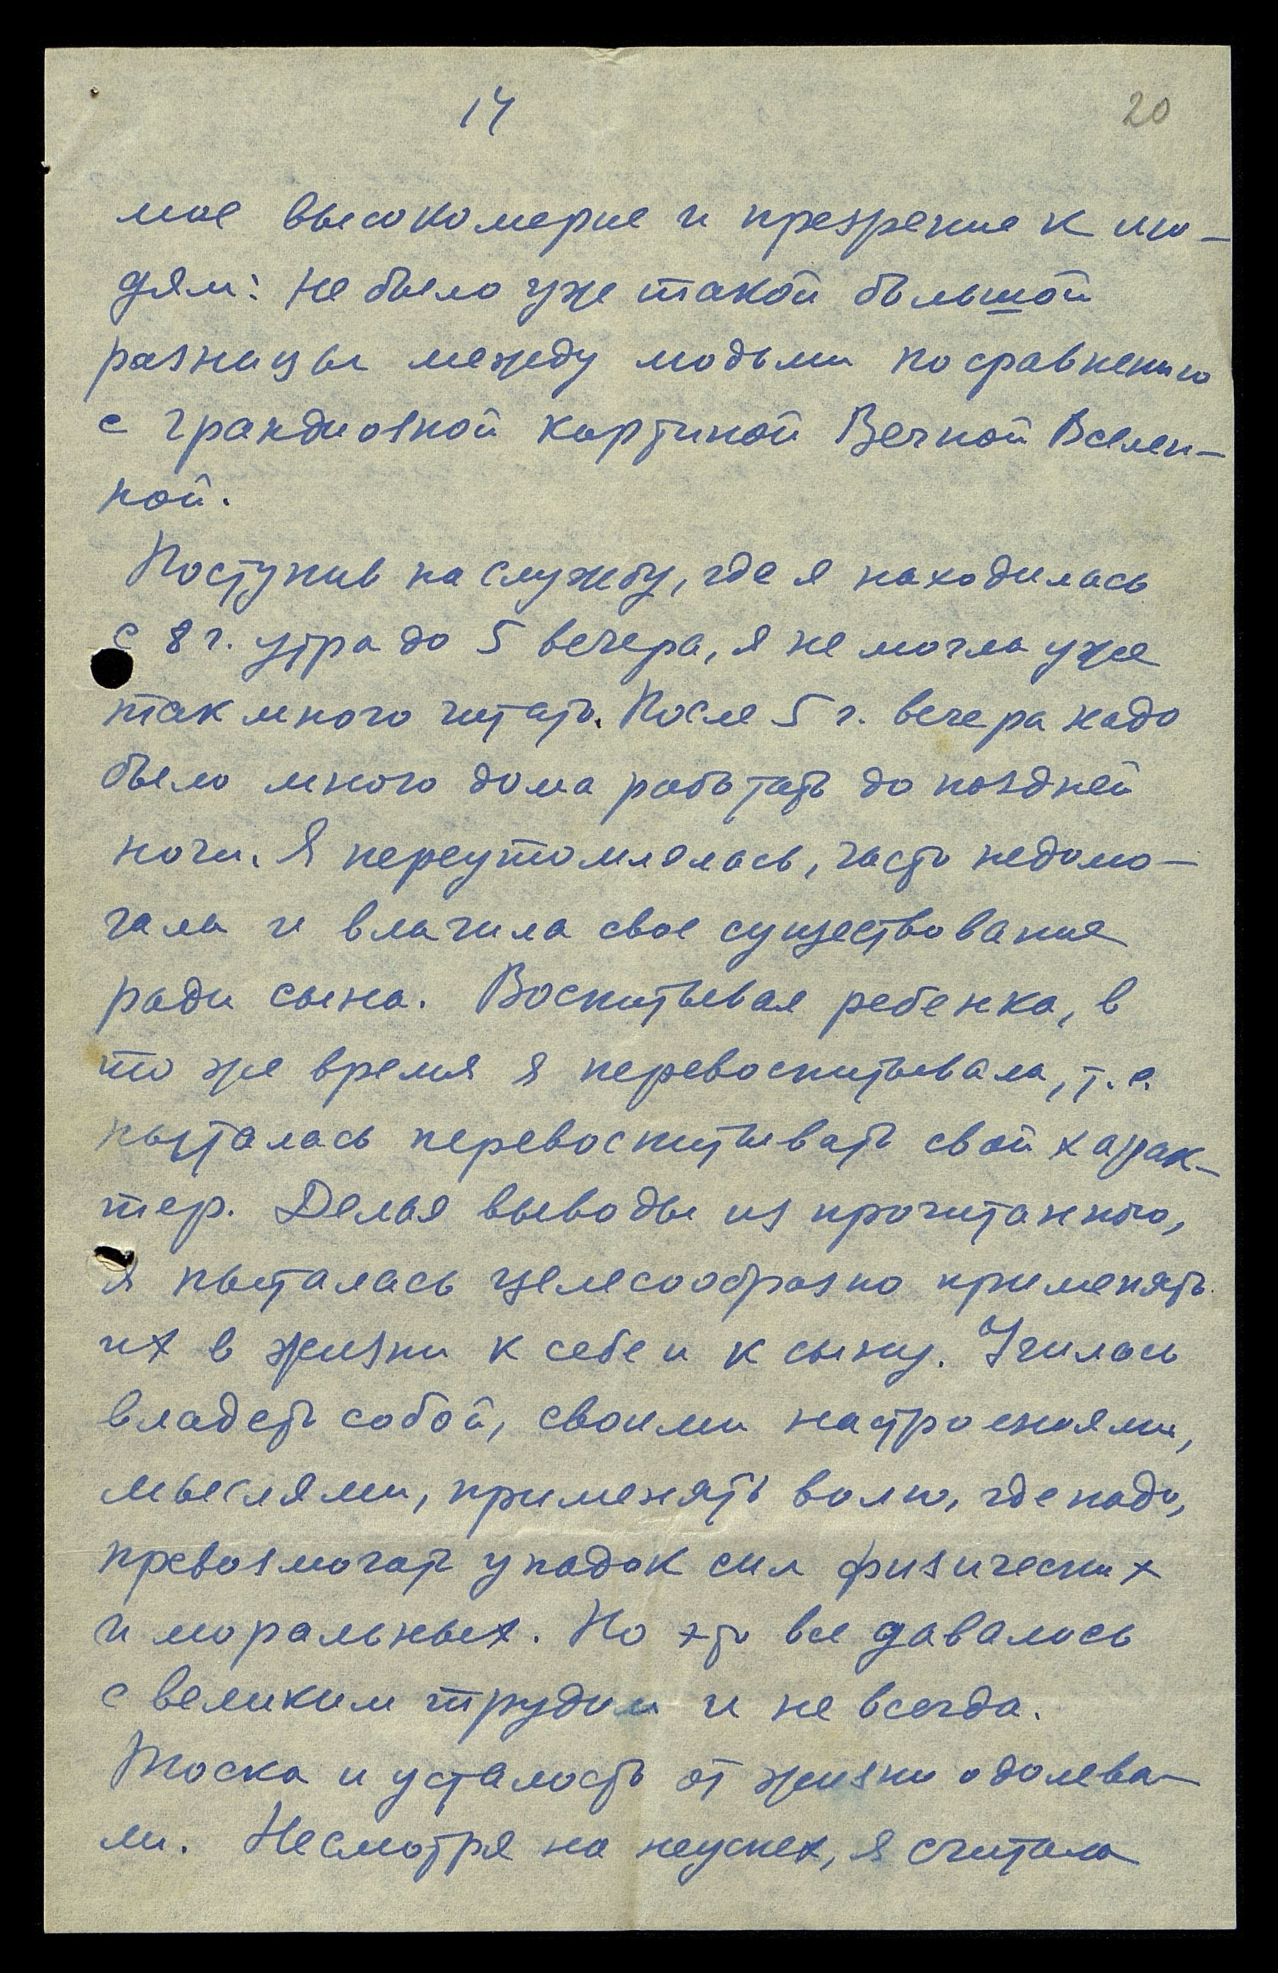 14
20
мое высокомерие и презрение к лю-
дям: не было уже такой большой
разницы между людьми по сравнению
с грандиозной картиной Вечной Вселен-
ной.
Поступив на службу, где я находилась
с 8 г. утра до 5 вечера, я не могла уже
так много читать. После 5 г. вечера надо
было много дома работать до поздней
ночи. Я переутомлялась, часто недомо-
гала и влачила свое существование
ради сына. Воспитывая ребенка, в
то же время я перевоспитывала, т.е.
пыталась перевоспитывать свой харак-
тер. Делая выводы из прочитанного,
я пыталась целесообразно применять
их в жизни к себе и к сыну. Училась
владеть собой, своими настроениями,
мыслями, применять волю, где надо,
превозмогать упадок сил физических
и моральных. Но это все давалось
с великим трудом и не всегда.
Тоска и усталость от жизни одолева-
ли. Несмотря на неуспех, я считала